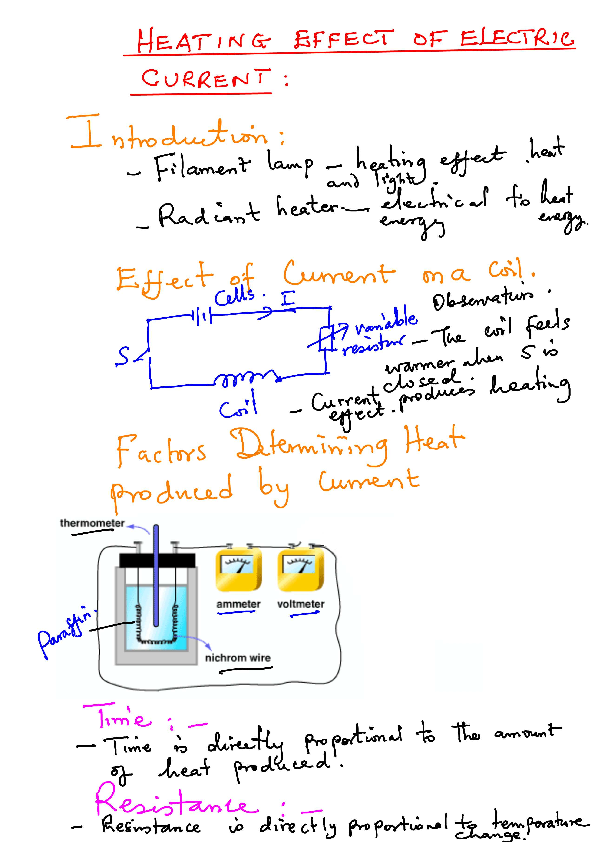 HEATING EFFECT OF ELECTRIC
CURRENT:
Introduction:
- Filament lamp - heating effect. heat
and light.
- Radiant heater - electrical to heat
energy energy.
Effect of Current on a Coil.
Cells. I
Observations.
variable
resistor
S
Coil
- The coil feels
warmer when S is
closed
- Current produces heating
effect.
Factors Determining Heat
produced by Current
thermometer
ammeter
voltmeter
Paraffin.
nichrom wire
Time: -
- Time is directly proportional to the amount
of heat produced.
Resistance: -
- Resinstance is directly proportional to temperature
change.